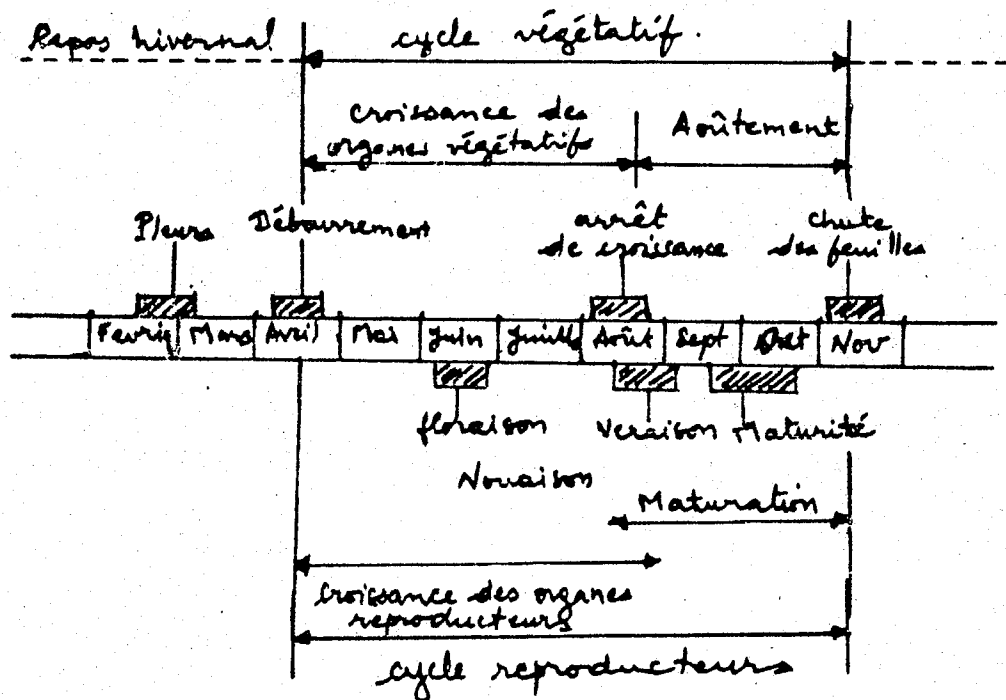 Repos hivernal
cycle végétatif.
croissance des
organes végétatifs
Aoûtement
Pleurs
Débourrement
arrêt
de croissance
chute
des feuilles
Fevrie Mars Avril Mai Juin Juill Août Sept Oct Nov
floraison
Veraison
Maturité
Nouaison
Maturation
Croissance des organes
reproducteurs
cycle reproducteurs